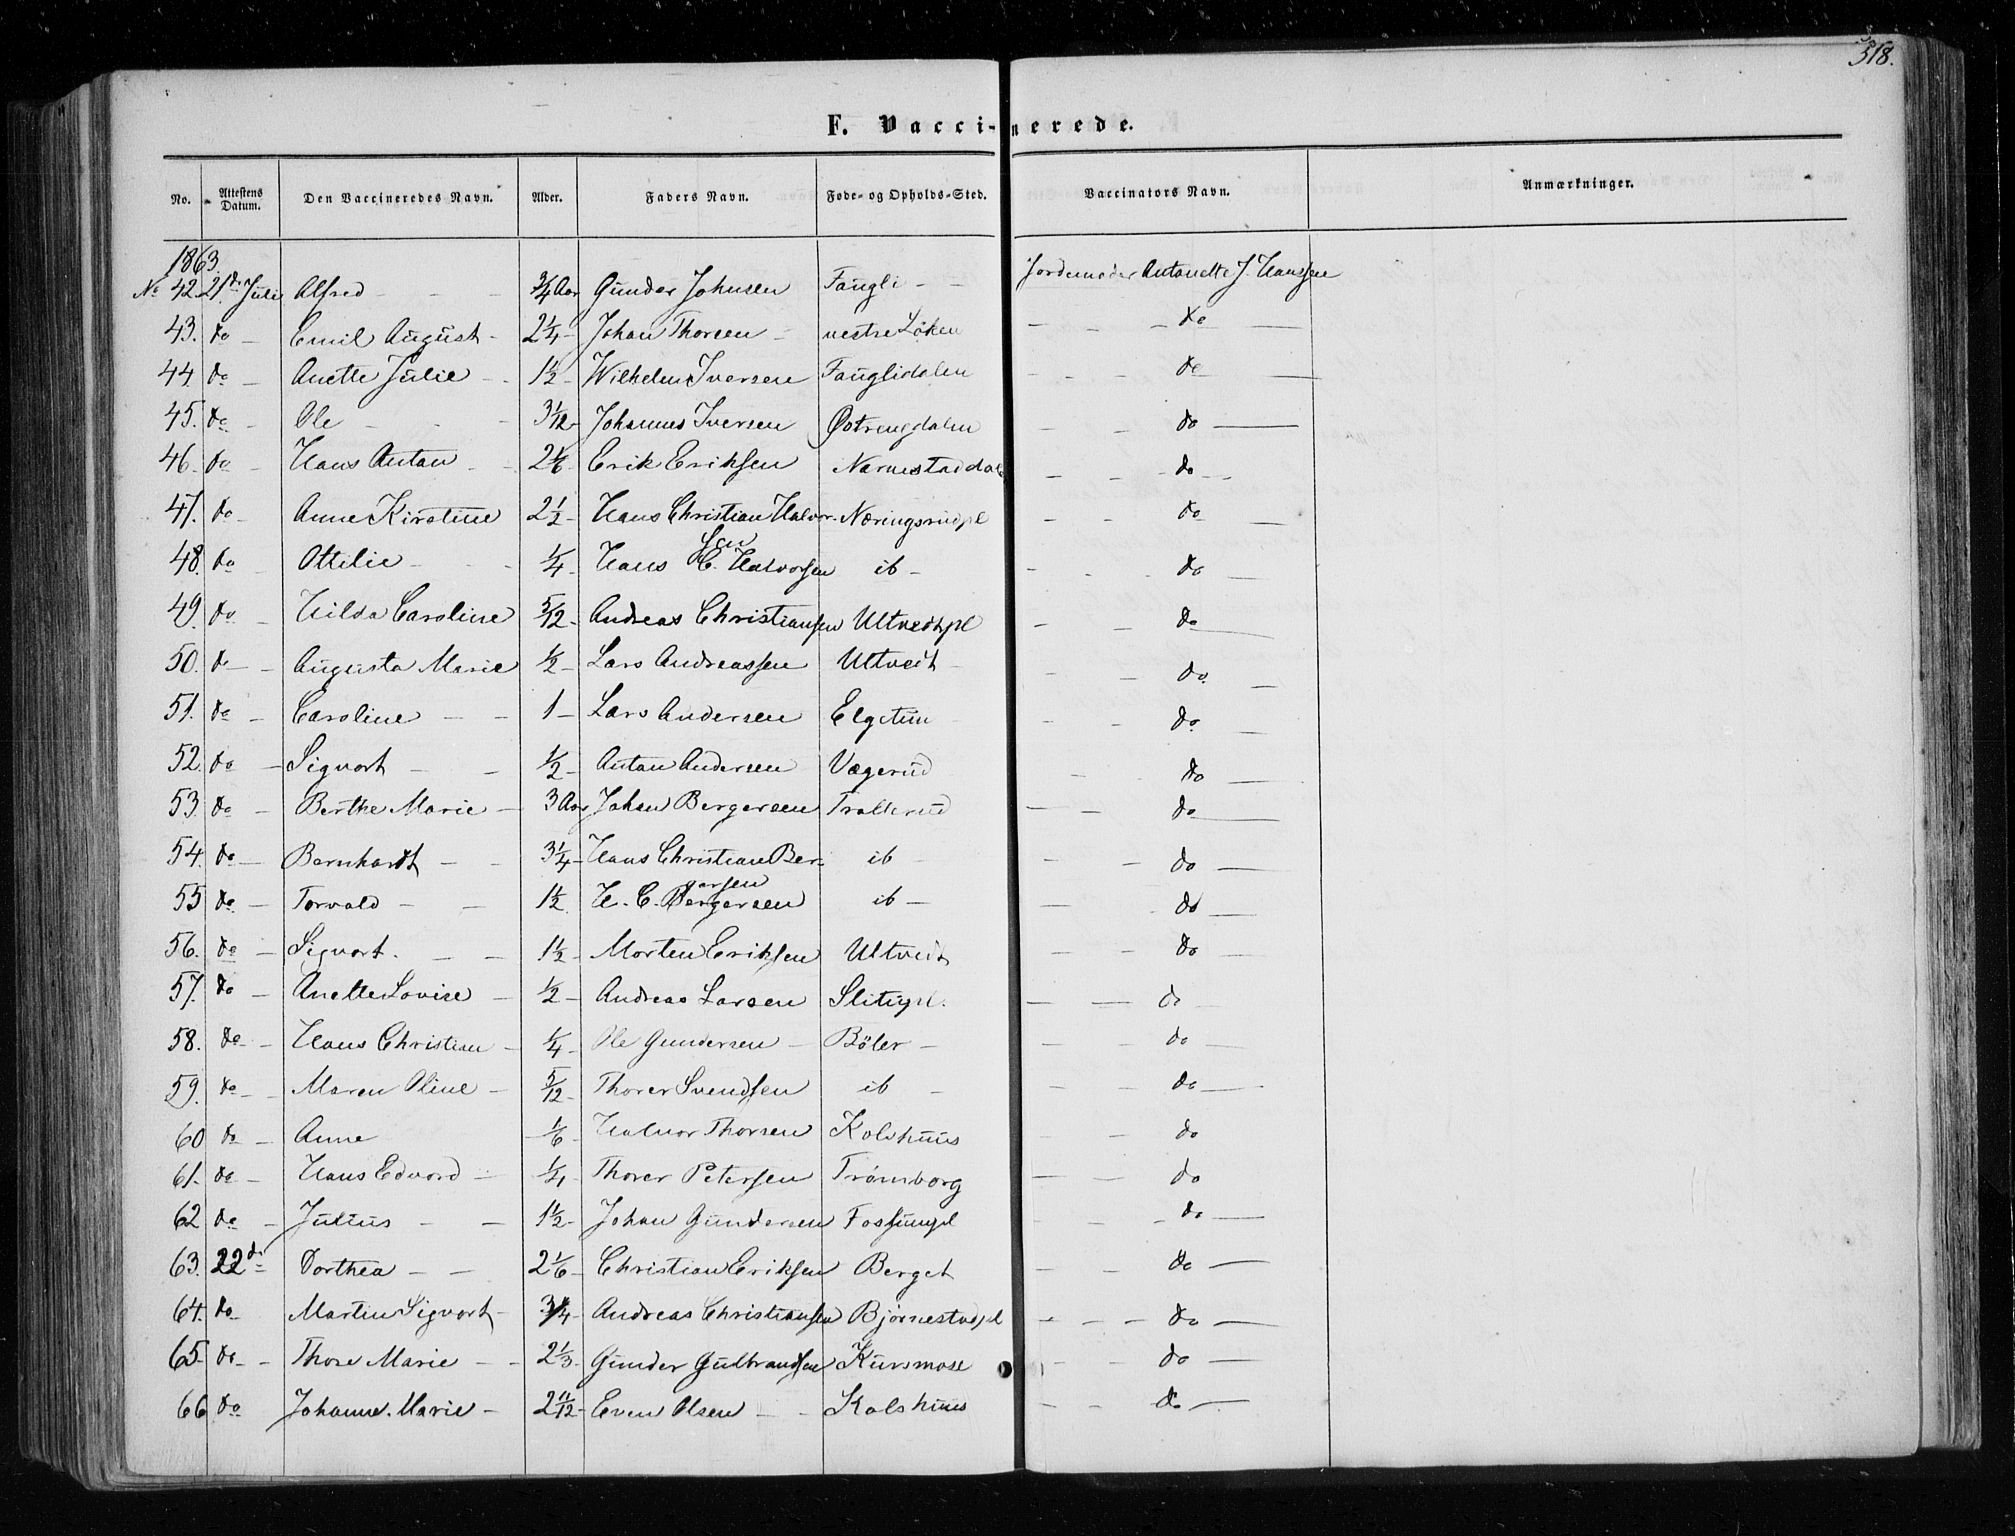 318.
F. Vaccinerede.
No. Attestens Datum. Den Vaccineredes Navn. Alder. Faders Navn. Føde- og Opholds-Sted. Vaccinators Navn. Anmærkninger.
1863.
No 42. 21de Juli Alfred - - - 3/4 Aar Gunder Johnsen Faugli - - Jordemoder Antonette J. Hanssen
43. do - Emil August - 2 1/4 - Johan Thorsen - vestre Löken - - - do -
44 do - Anette Julie - - 1 1/2 - Wilhelm Iversen Fauglidalen - - - do -
45. do - Ole - - - 3 1/12 - Johannes Iversen Østrengdalen - - do -
46. do - Hans Anton - - 2 1/6 Erik Eriksen - - - do - -
47. do - Anne Kirstine 2 1/2 - Hans Christian Halvor- Næringsrudpl - - do -
sen
48. do - Ottilie - - - 1/4 - Hans C. Halvorsen ib - - - do -
49. do - Hilda Caroline 5/12 - Andreas Christiansen Ultvedtpl - - do -
50. do - Augusta Marie 1/2 - Lars Andreassen Ultvedt - - - do -
51. do - Caroline - - 1 - Lars Andersen Elgetun - - do -
52. do - Sigvart - - 1/2 - Anton Andersen Vægerud - - do -
53. do - Berthe Marie - 3 Aar Johan Bergersen Trollerud - - do -
54. do - Bernhardt - - 3 1/4 - Hans Christian Ber- ib - - - do -
gersen
55 do - Torvald - - 1 1/2 H. C. Bergersen ib - - - do -
56. do - Sigvart. - - 1 1/2 - Morten Eriksen Ultvedt - - do -
57. do - Anette Lovise - 1/2 - Andreas Larsen Slitupl. - - do -
58. do - Hans Christian - 1/4 - Ole Gundersen - Böler - - - do -
59. do - - Maren Oline - 5/12 - Thorer Svendsen ib - - - do -
60 do - Anne - 1/6 - Halvor Thorsen Kolshuus - - do
61. do - Hans Edvard - 1/4 - Thorer Petersen Trømborg - - do
62 do - Julius - - 1 1/2 - Johan Gundersen Fossumpl - - - do -
63. 22de Dorthea - - 2 1/6 - Christian Eriksen Berget - - do -
64. do Martin Sigvart - 3/4 - Andreas Christiansen Bjørnestadpl - - - do -
65. do - Thore Marie - - 2 1/3 - Gunder Gulbrandsen Kursmose - - do -
66 do Johanne Marie - 2 11/12 - Even Olsen - - Kolshuus - - do -